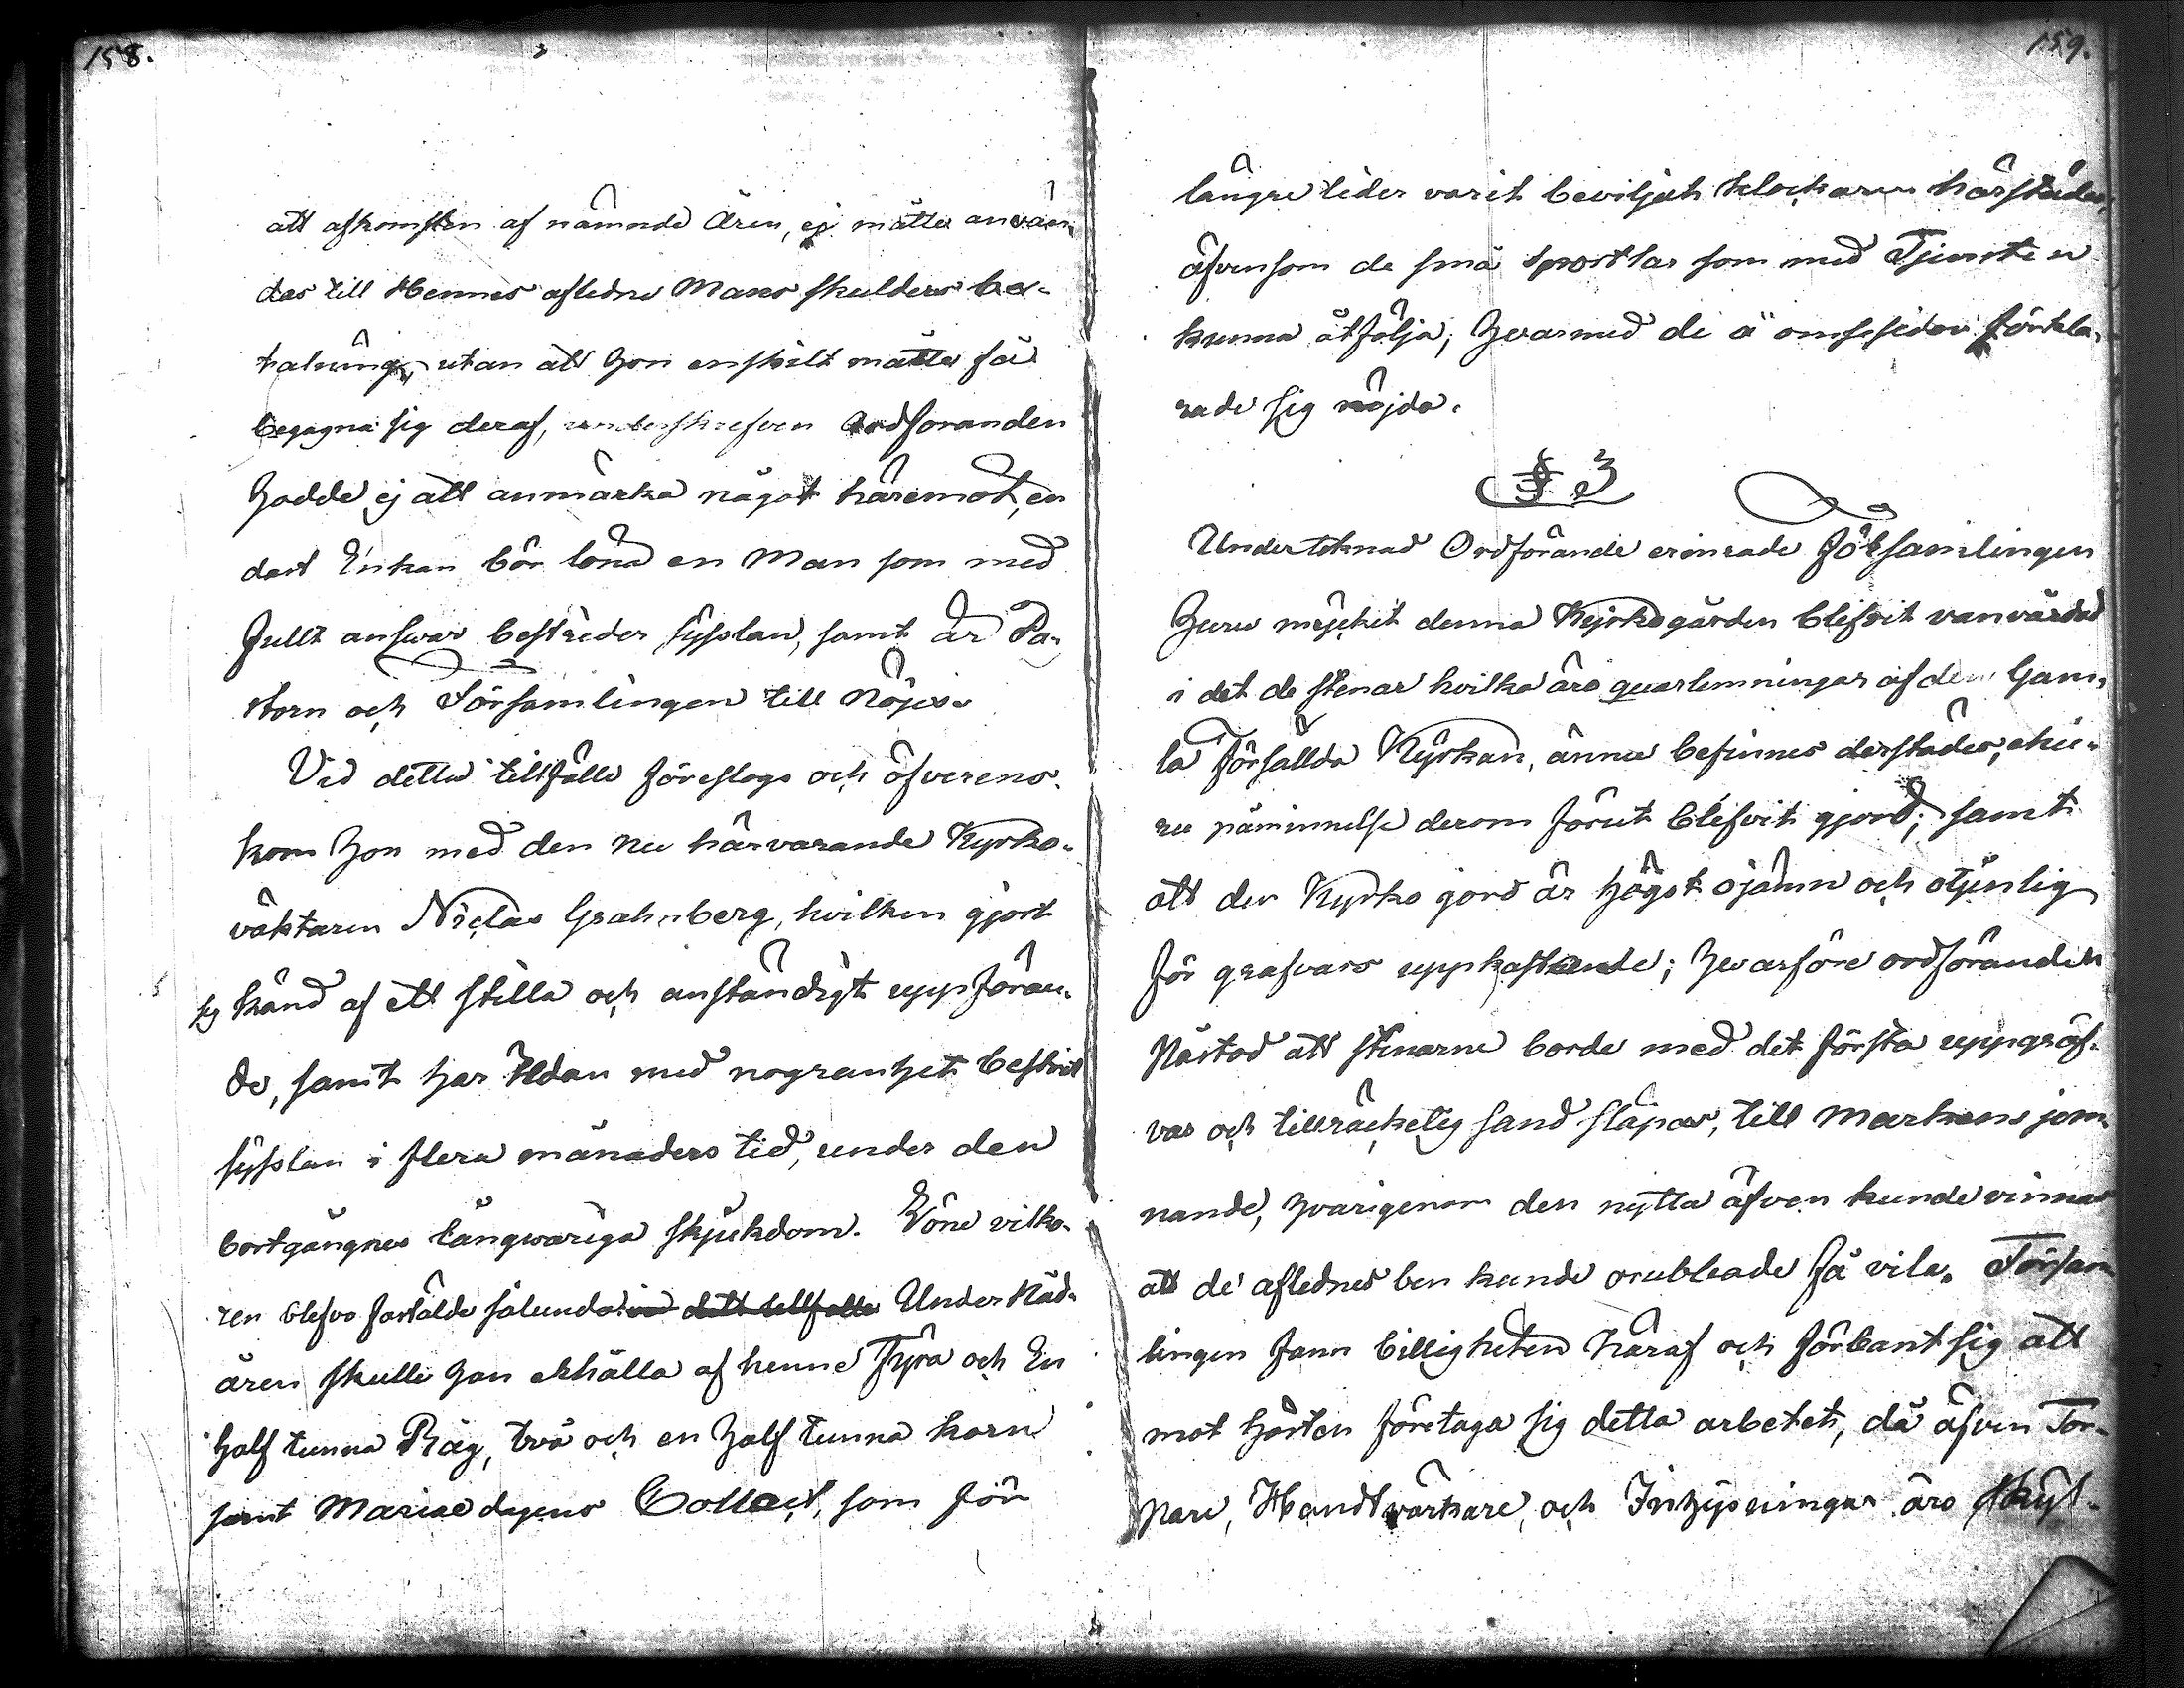 158.
att afkomsten af nämnde Åren, ej måtte använ-
das till Hennes afledne Mans skulders be-
talning, utan att hon enskilt måtte få
begagna sig deraf, underskrefven Ordföranden
hadde ej att anmärka något häremot, en
dast Enkan bör löna en Man som med
fullt answar bestrider sysslan, samt är Pa-
storn och Församlingen till Nöjes.
Vid detta tillfälle föreslogs och öfverens-
kom hon med den nu härvarande Kyrko-
väktaren Niclas Grahnberg, hvilken gjort
sig känd af ett stilla och anständigt uppföran-
de, samt har redan med nogranhet bestrit
sysslan i flera månaders tid, under den
bortgångnes långwariga skjukdom. Löne vilko-
ren blefvo fastälde sålunda: Under Nåd-
åren skulle han erhålla af henne Fyra och En
half tunna Råg, två och en half tunna korn
samt Mariæ dagens Collect, som för
159.
längre tider varit beviljat klockaren härstädes,
äfvensom de små sportlar som med Tjensten
kunna åtfölja; hvarmed de å ömsesidor förkla-
rade sig nöjda.
§ 3
Underteknad Ordförande erinrade Församlingen
huru mycket denna Kyrkogården blifvit vanvårdad
i det de stenar hvilka äro quarlemningar af den Gam-
la förfallda Kyrkan, ännu befinnes derstädes, ehu-
ru påminnelse derom förut blifvit gjord; samt
att den Kyrko jord är högst ojämn och otjenlig
för grafvars uppkastande; hvarföre ordföranden
Påstod att stenarne borde med det första uppgräf-
vas och tillräckelig sand släpas, till Markens jem-
nande, hvarigenom den nytta äfven kunde vinnas
att de aflednes ben kunde orubbade få vila. Försam
lingen fann billigheten häraf och förbant sig att
mot hösten företaga sig detta arbetet, då äfven Tor-
pare, Handtvärkare, och Inhysningar äro skyl-